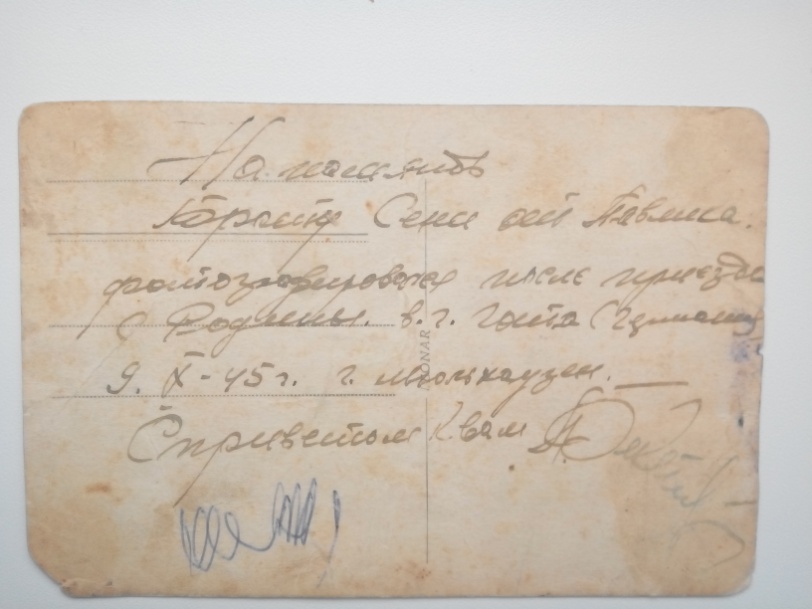 На память
брату Сени от Павлика.
фотографировался после приезда
с Родины. в. г. Гота (Германия)
9. X-45 г. г. Мюльхаузен.
С приветом к вам